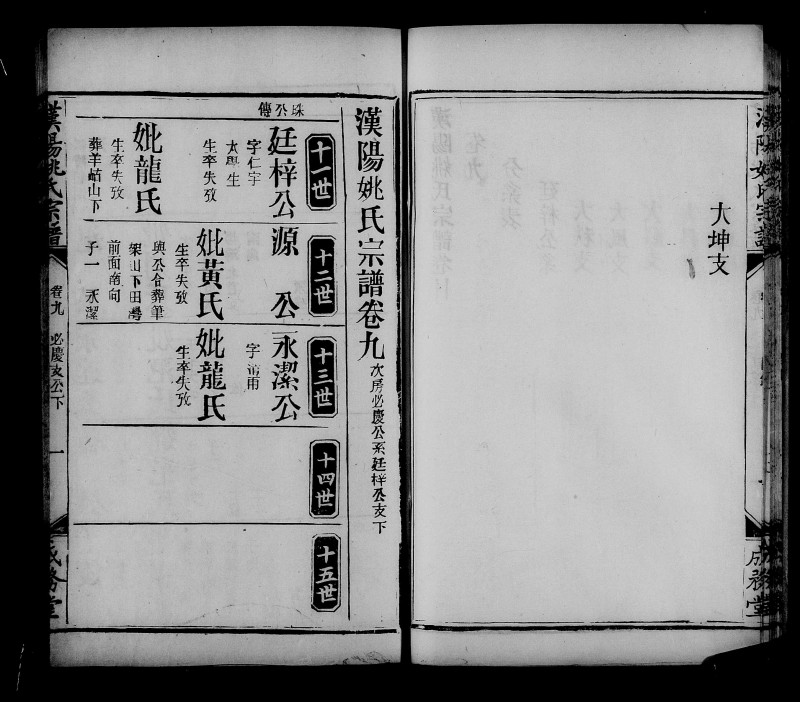 大坤支
成務堂
漢陽姚氏宗譜卷九 次房必慶公系廷梓公支下
十一世
十二世
十三世
十四世
十五世
珠公傳
廷梓公
字仁宇
太學生
生卒失攷
妣龍氏
生卒失攷
葬羊岵山下
源公
妣黃氏
生卒失攷
與公合葬筆
架山下田灣
前面南向
子一 永潔
永潔公
字
妣龍氏
生卒失攷
漢陽姚氏宗譜
卷九 必慶支公下
一
成務堂